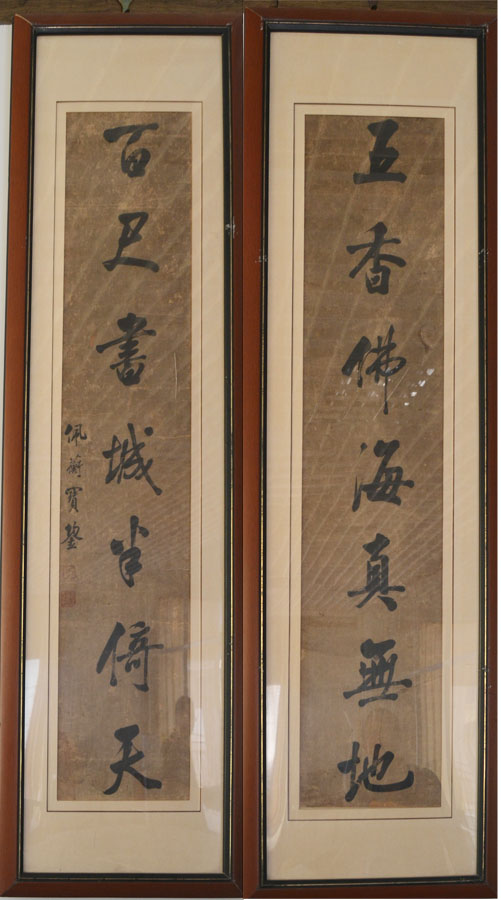 五香佛海真無地
百尺書城半倚天
佩蘅寶鋆